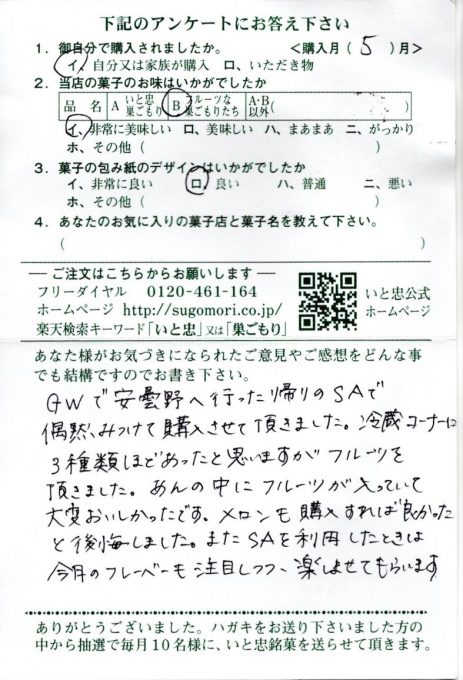 下記のアンケートにお答え下さい
1. 御自分で購入されましたか。 <購入月(5)月>
イ、自分又は家族が購入 ロ、いただき物
2. 当店の菓子のお味はいかがでしたか
品 名 A いと忠巣ごもり B フルーツな巣ごもりたち A・B以外( )
イ、非常に美味しい ロ、美味しい ハ、まあまあ ニ、がっかり
ホ、その他( )
3. 菓子の包み紙のデザインはいかがでしたか
イ、非常に良い ロ、良い ハ、普通 ニ、悪い
ホ、その他( )
4. あなたのお気に入りの菓子店と菓子名を教えて下さい。
( )
― ご注文はこちらからお願いします ―
フリーダイヤル 0120-461-164
ホームページ http://sugomori.co.jp/
楽天検索キーワード「いと忠」又は「巣ごもり」
いと忠公式
ホームページ
あなた様がお気づきになられたご意見やご感想をどんな事
でも結構ですのでお書き下さい。
GWで安曇野へ行った帰りのSAで
偶然、みつけて購入させて頂きました。冷蔵コーナーに
3種類ほどあったと思いますがフルーツを
頂きました。あんの中にフルーツが入っていて
大変おいしかったです。メロンも購入すれば良かった
と後悔しました。またSAを利用したときは
今月のフレーバーも注目しつつ、楽しませてもらいます
ありがとうございました。ハガキをお送り下さいました方の
中から抽選で毎月10名様に、いと忠銘菓を送らせて頂きます。